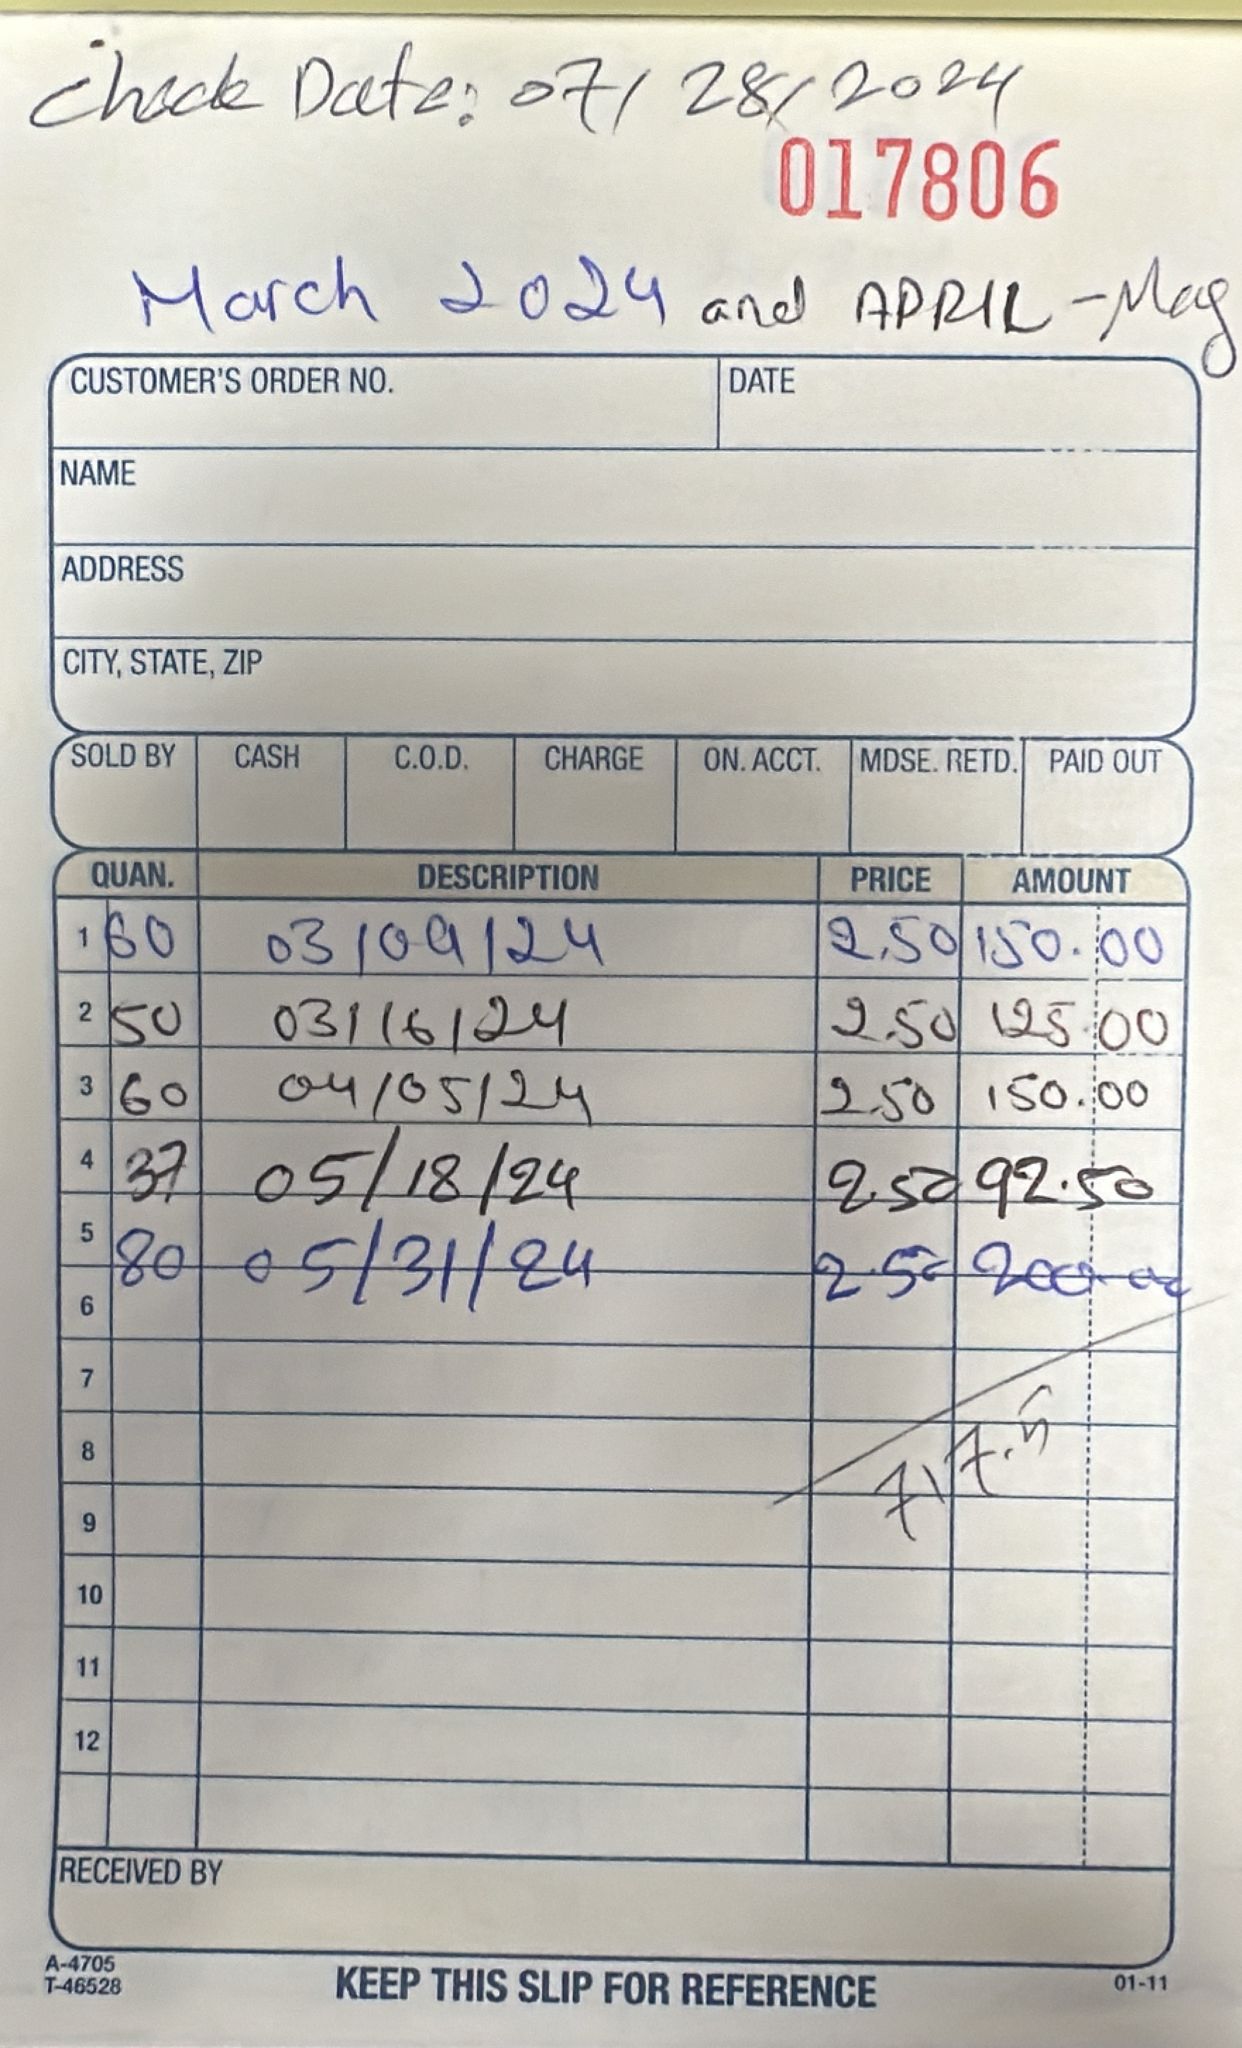 Check Date: 07/28/2024
017806
March 2024 and APRIL - May
CUSTOMER'S ORDER NO. DATE
NAME
ADDRESS
CITY, STATE, ZIP
SOLD BY CASH C.O.D. CHARGE ON. ACCT. MDSE. RETD. PAID OUT
QUAN. DESCRIPTION PRICE AMOUNT
1 60 03/09/24 2.50 150.00
2 50 03/16/24 2.50 125.00
3 60 04/05/24 2.50 150.00
4 37 05/18/24 2.50 92.50
5 80 05/31/24 2.50 200.00
6
7
8 717.5
9
10
11
12
RECEIVED BY
A-4705
T-46528
KEEP THIS SLIP FOR REFERENCE
01-11